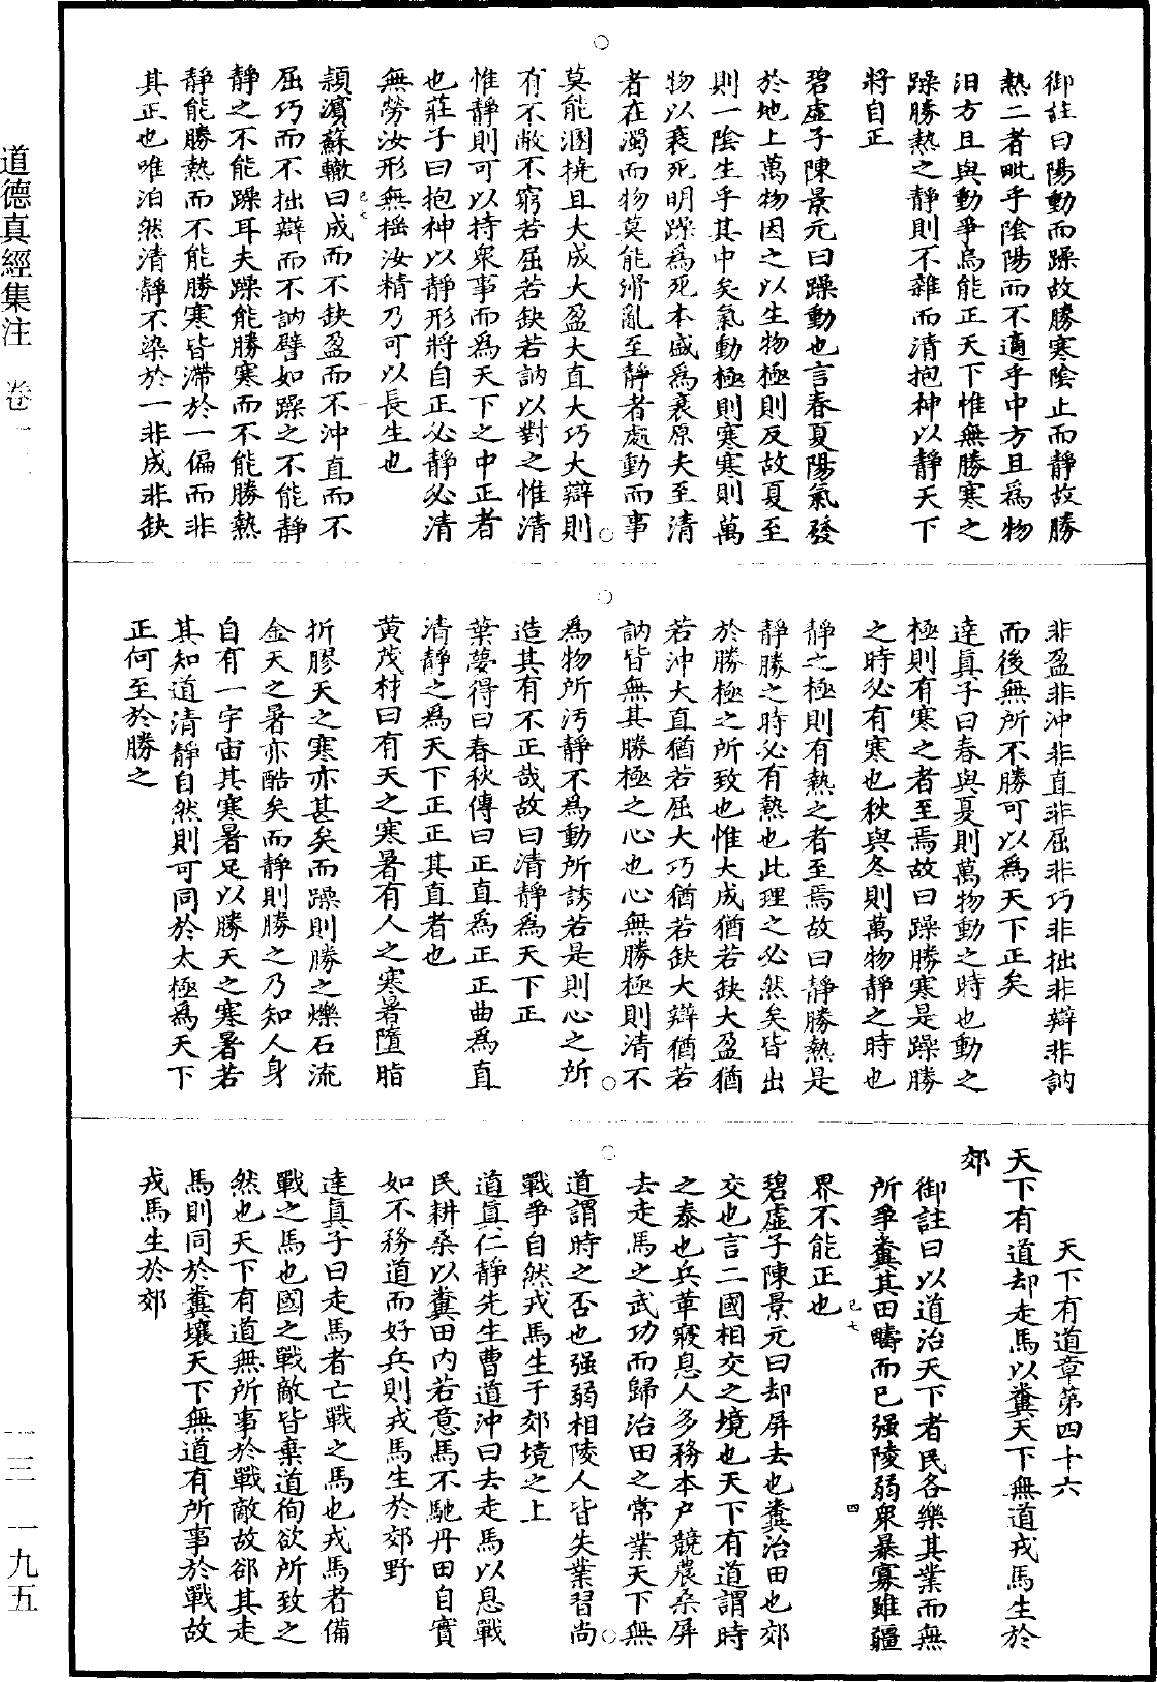 御註曰陽動而躁故勝寒陰止而靜故勝
熱二者毗乎陰陽而不適乎中方且為物
汨方且與動爭烏能正天下惟無勝寒之
躁勝熱之靜則不雜而清抱神以靜天下
將自正
碧虛子陳景元曰躁動也言春夏陽氣發
於地上萬物因之以生物極則反故夏至
則一陰生乎其中矣氣動極則寒寒則萬
物以衰死明躁為死本盛為衰原夫至清
者在濁而物莫能滑亂至靜者處動而事
莫能溷撓且大成大盈大直大巧大辯則
有不敝不窮若屈若缺若訥以對之惟清
惟靜則可以持衆事而為天下之中正者
也莊子曰抱神以靜形將自正必靜必清
無勞汝形無搖汝精乃可以長生也
潁濱蘇轍曰成而不缺盈而不沖直而不
屈巧而不拙辯而不訥譬如躁之不能靜
靜之不能躁耳夫躁能勝寒而不能勝熱
靜能勝熱而不能勝寒皆滯於一偏而非
其正也唯泊然清靜不染於一非成非缺
非盈非沖非直非屈非巧非拙非辯非訥
而後無所不勝可以為天下正矣
達真子曰春與夏則萬物動之時也動之
極則有寒之者至焉故曰躁勝寒是躁勝
之時必有寒也秋與冬則萬物靜之時也
靜之極則有熱之者至焉故曰靜勝熱是
靜勝之時必有熱也此理之必然矣皆出
於勝極之所致也惟大成猶若缺大盈猶
若沖大直猶若屈大巧猶若缺大辯猶若
訥皆無其勝極之心也心無勝極則清不
為物所汚靜不為動所誘若是則心之所
造其有不正哉故曰清靜為天下正
葉夢得曰春秋傳曰正直為正正曲為直
清靜之為天下正正其直者也
黃茂材曰有天之寒暑有人之寒暑墮脂
折膠天之寒亦甚矣而躁則勝之爍石流
金天之暑亦酷矣而靜則勝之乃知人身
自有一宇宙其寒暑足以勝天之寒暑若
其知道清靜自然則可同於太極為天下
正何至於勝之
天下有道章第四十六
天下有道却走馬以糞天下無道戎馬生於
郊
御註曰以道治天下者民各樂其業而無
所爭糞其田疇而已强陵弱衆暴寡雖疆
界不能正也
己七
四
碧虛子陳景元曰却屏去也糞治田也郊
交也言二國相交之境也天下有道謂時
之泰也兵革寢息人多務本戶競農桑屏
去走馬之武功而歸治田之常業天下無
道謂時之否也强弱相陵人皆失業習尚
戰爭自然戎馬生于郊境之上
道真仁靜先生曹道沖曰去走馬以息戰
民耕桑以糞田內若意馬不馳丹田自實
如不務道而好兵則戎馬生於郊野
達真子曰走馬者亡戰之馬也戎馬者備
戰之馬也國之戰敵皆棄道徇欲所致之
然也天下有道無所事於戰敵故郤其走
馬則同於糞壤天下無道有所事於戰故
戎馬生於郊
道德真經集注
卷
一三
一九五